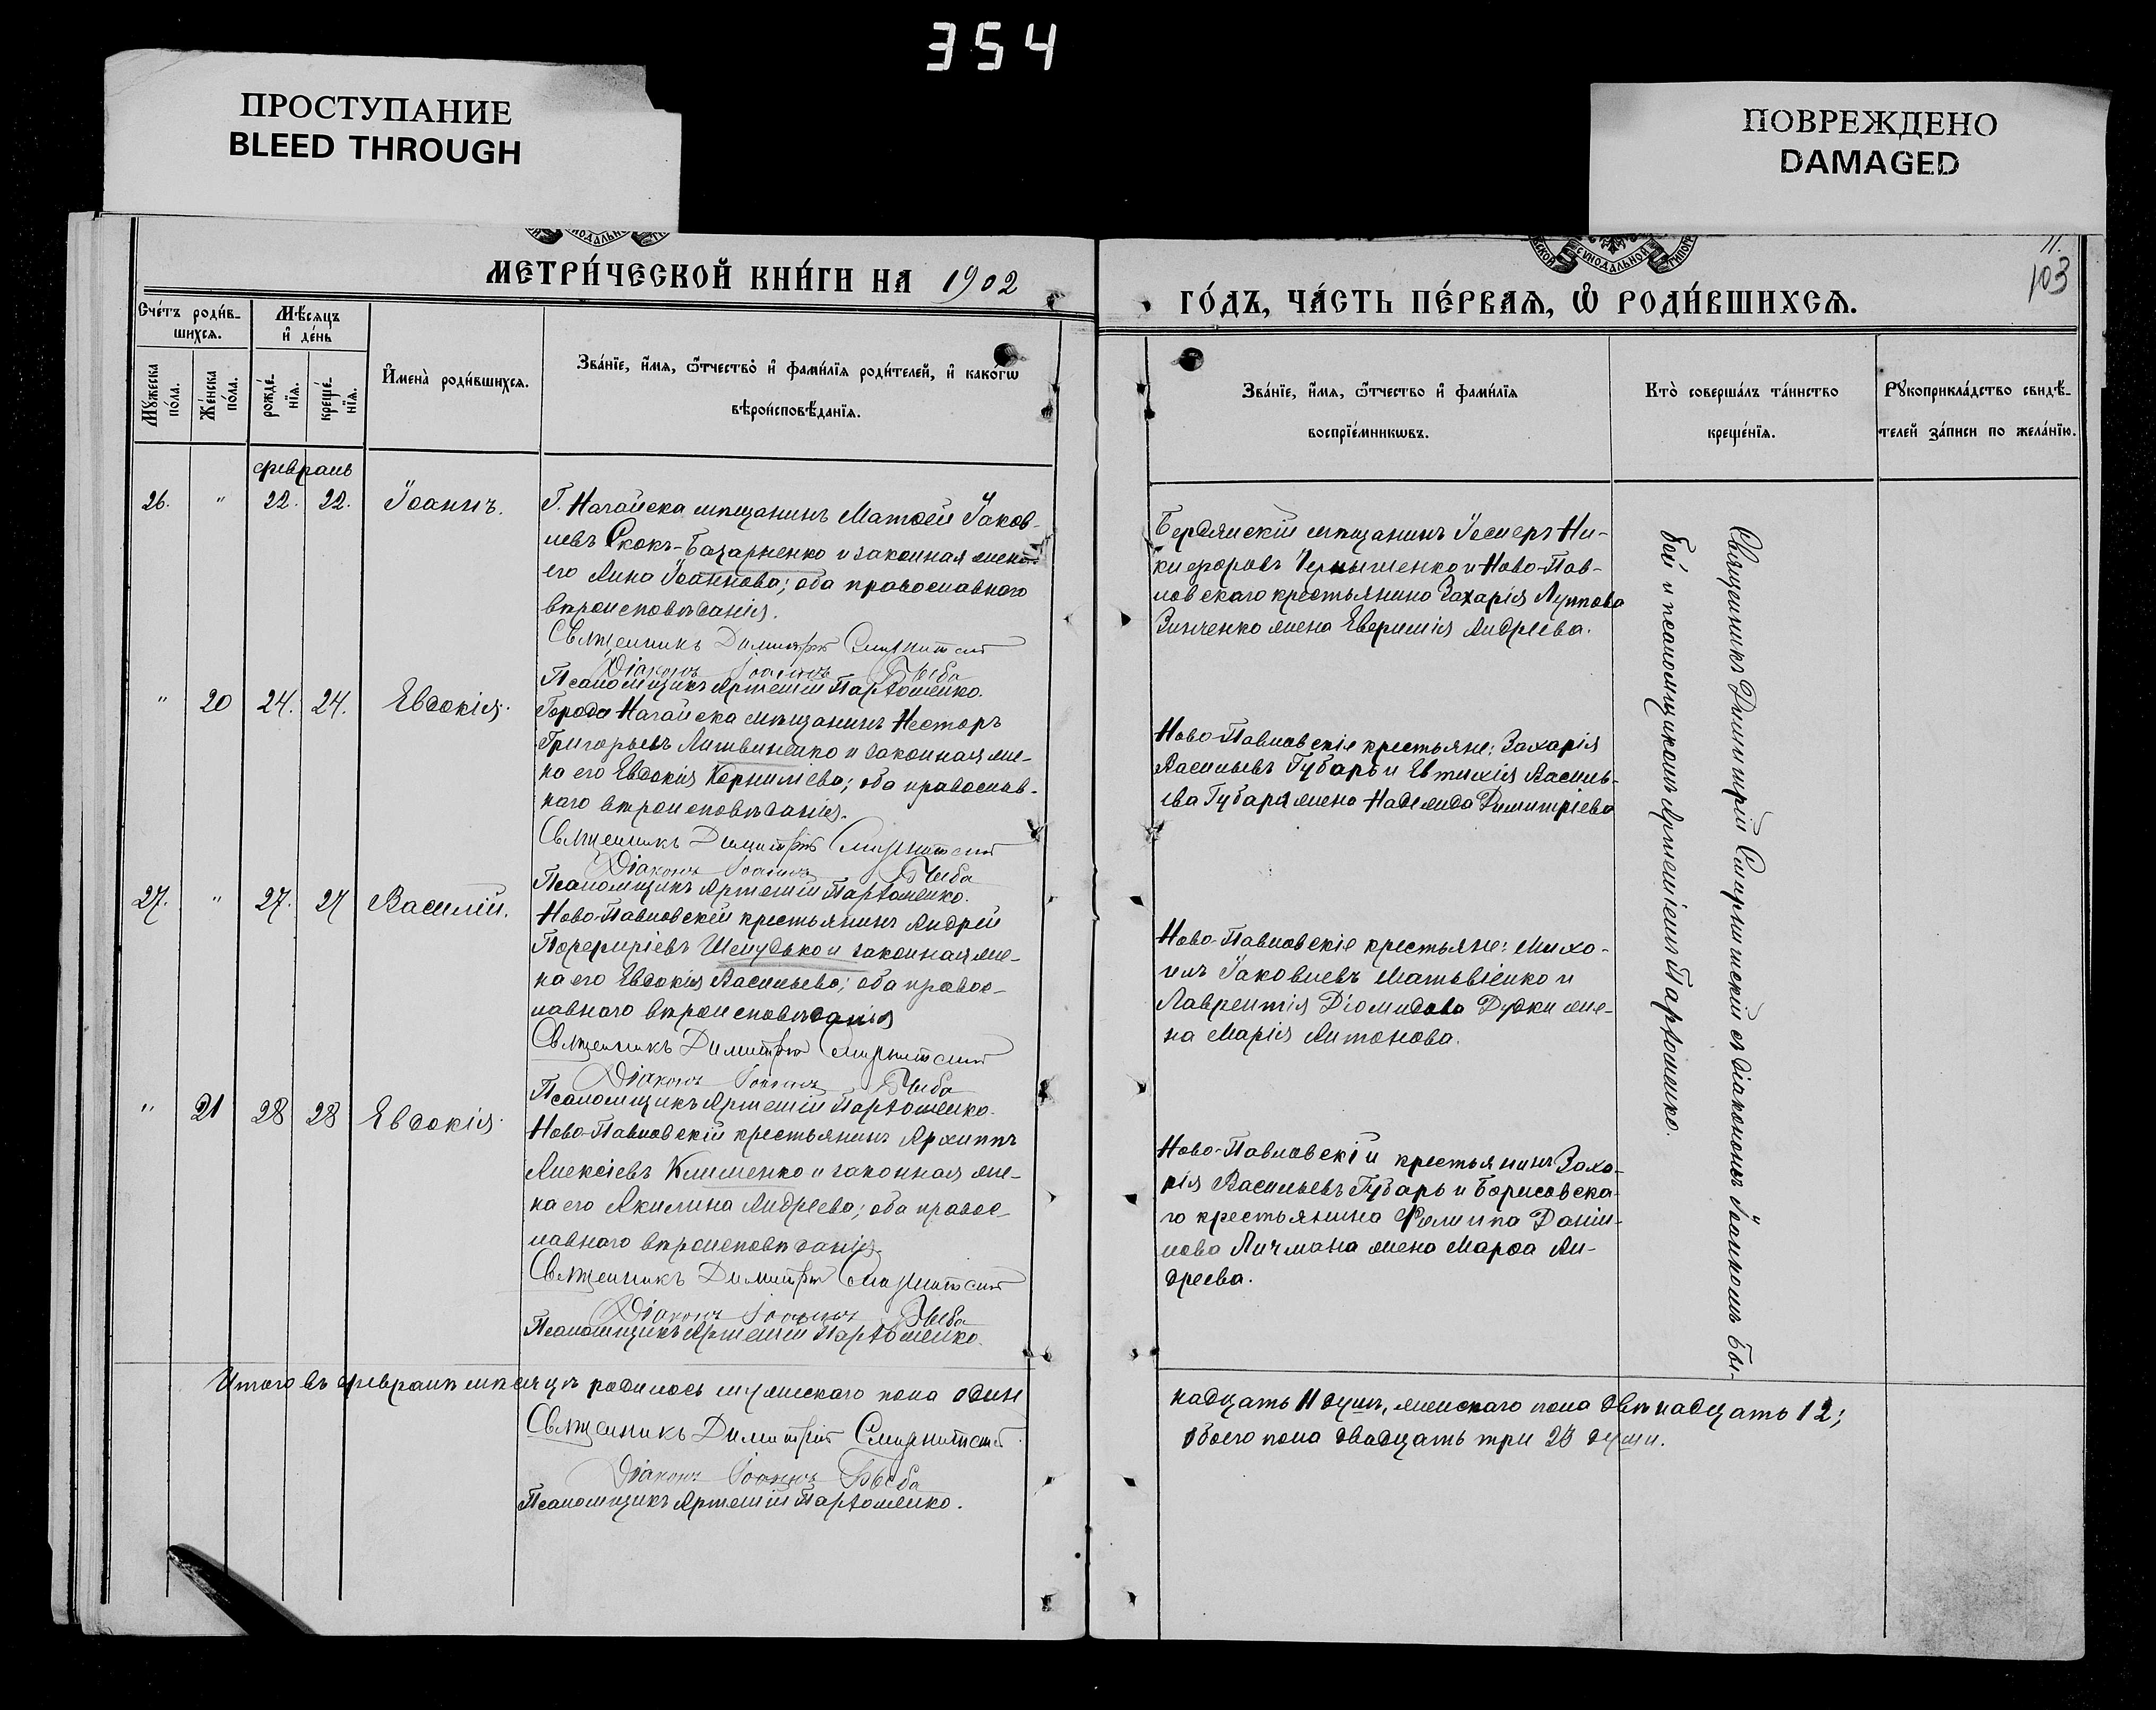 354
ПРОСТУПАНИЕ
BLEED THROUGH
ПОВРЕЖДЕНО
DAMAGED
МЕТРИ́ЧЕСКОЙ КНИ́ГИ НА 1902
ГО́ДЪ, ЧА́СТЬ ПЕ́РВАЯ, Ѡ РОДИ́ВШИХСЯ.
11.
103
Сче́тъ роди́в-
шихся.
Мѣ́сяцъ
и де́нь
Мꙋ́жеска
по́ла.
Же́нска
по́ла.
рожде́-
нїя.
креще́-
нїя.
Имена̀ роди́вшихся.
Зва́нїе, и́мя, ѻ́тчество и фами́лїя роди́телей, и како́гѡ
вѣроисповѣ́данїя.
Зва́нїе, и́мя, ѻ́тчество и фами́лїя
воспрїе́мникѡвъ.
Кто̀ соверша́лъ та́инство
креще́нїя.
Рꙋкоприкла́дство свидѣ́-
телей за́писи по жела́нїю.
февраль
26. " 22. 22. Іоаннъ.
Г. Нагайска мѣщанинъ Матѳей Іаков-
левъ Скокъ-Базарненко и законная жена
его Анна Іоаннова; оба православнаго
вѣроисповѣданія.
Священникъ Димитрій Смирнитскій
Діаконъ Іоаннъ
Псаломщикъ Артемій Пархоменко.
Бердянскій мѣщанинъ Ни-
кифоровъ Чернышенко и Ново-Пав-
ловскаго крестьянина Захарія
Зинченко жена Андреева.
" 20 24. 24. Евдокія.
Города Нагайска мѣщанинъ Несторъ
Григорьевъ Литвиненко и законная же-
на его Евдокія Корнилієва; оба православ-
наго вѣроисповѣданія.
Священникъ Димитрій Смирнитскій
Діаконъ Іоаннъ
Псаломщикъ Артемій Пархоменко.
Ново-Павловскіе крестьяне: Захарія
Васильевъ Губарь и Евтихія Василь-
ева Губаря жена Надежда Димитріева
27. " 27. 27 Василій.
Ново-Павловскій крестьянинъ Андрей
Порфиріевъ Шелудько и законная же-
на его Евдокія Васильева; оба правос-
лавнаго вѣроисповѣданія
Священникъ Димитрій Смирнитскій
Діаконъ Іоаннъ
Псаломщикъ Артемій Пархоменко.
Ново-Павловскіе крестьяне: Миха-
илъ Іаковлевъ Матвѣенко и
Лаврентія Діомидова Дудки же-
на Марія Антонова.
" 21 28 28 Евдокія.
Ново-Павловскій крестьянинъ Архиппъ
Алексіевъ Клименко и законная же-
на его Акилина Андреева; оба правос-
лавнаго вѣроисповѣданія.
Священникъ Димитрій Смирнитскій
Діаконъ Іоаннъ
Псаломщикъ Артемій Пархоменко.
Ново-Павловскій крестьянинъ Заха-
рія Васильевъ Губарь и Борисовска-
го крестьянина Филиппа Даніи-
лова Личмана жена Марѳа Ан-
дреева.
Священникъ Димитрій Смирнитскій съ діакономъ Іоанномъ Бы-
бой и псаломщикомъ Артеміемъ Пархоменко.
Итого въ февралѣ мѣсяцѣ родилось мужескаго пола один
надцать 11 душъ, женскаго пола двѣнадцать 12;
обоего пола двадцать три 23 души.
Священникъ Димитрій Смирнитскій
Діаконъ Іоаннъ
Псаломщикъ Артемій Пархоменко.